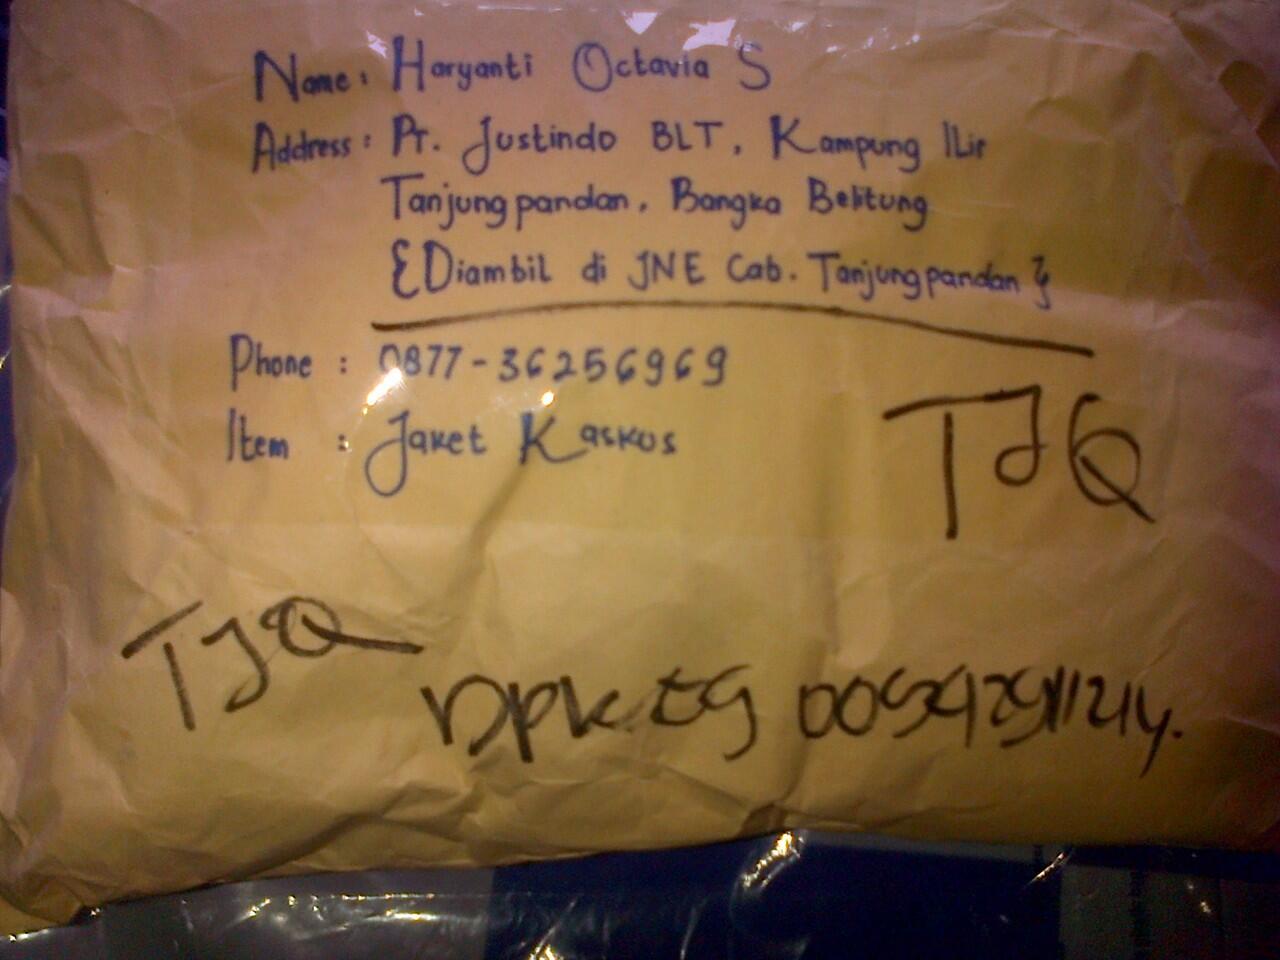 Name : Haryanti Octavia S
Address : PT. Justindo BLT, Kampung ILir
Tanjungpandan, Bangka Belitung
{Diambil di JNE Cab. Tanjungpandan}
Phone : 0877-36256969
Item : Jaket Kaskus
TJQ
TJQ